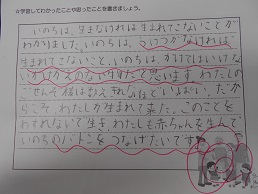 ☆学習してわかったことや思ったことを書きましょう。
いのちは、生まなければ生まれてこないことが
わかりました。いのちは、つながなければ
生まれてこないこと。いのちは、かけてはいけない
いかけがえのない
だと思います。わたしの
ごせんぞ様は
いるはい。だか
らこそわたしが生まれて来た。このことを
わすれないで生き、わたしも赤ちゃんを生んで、
いのちのバトンをつなげたいです。